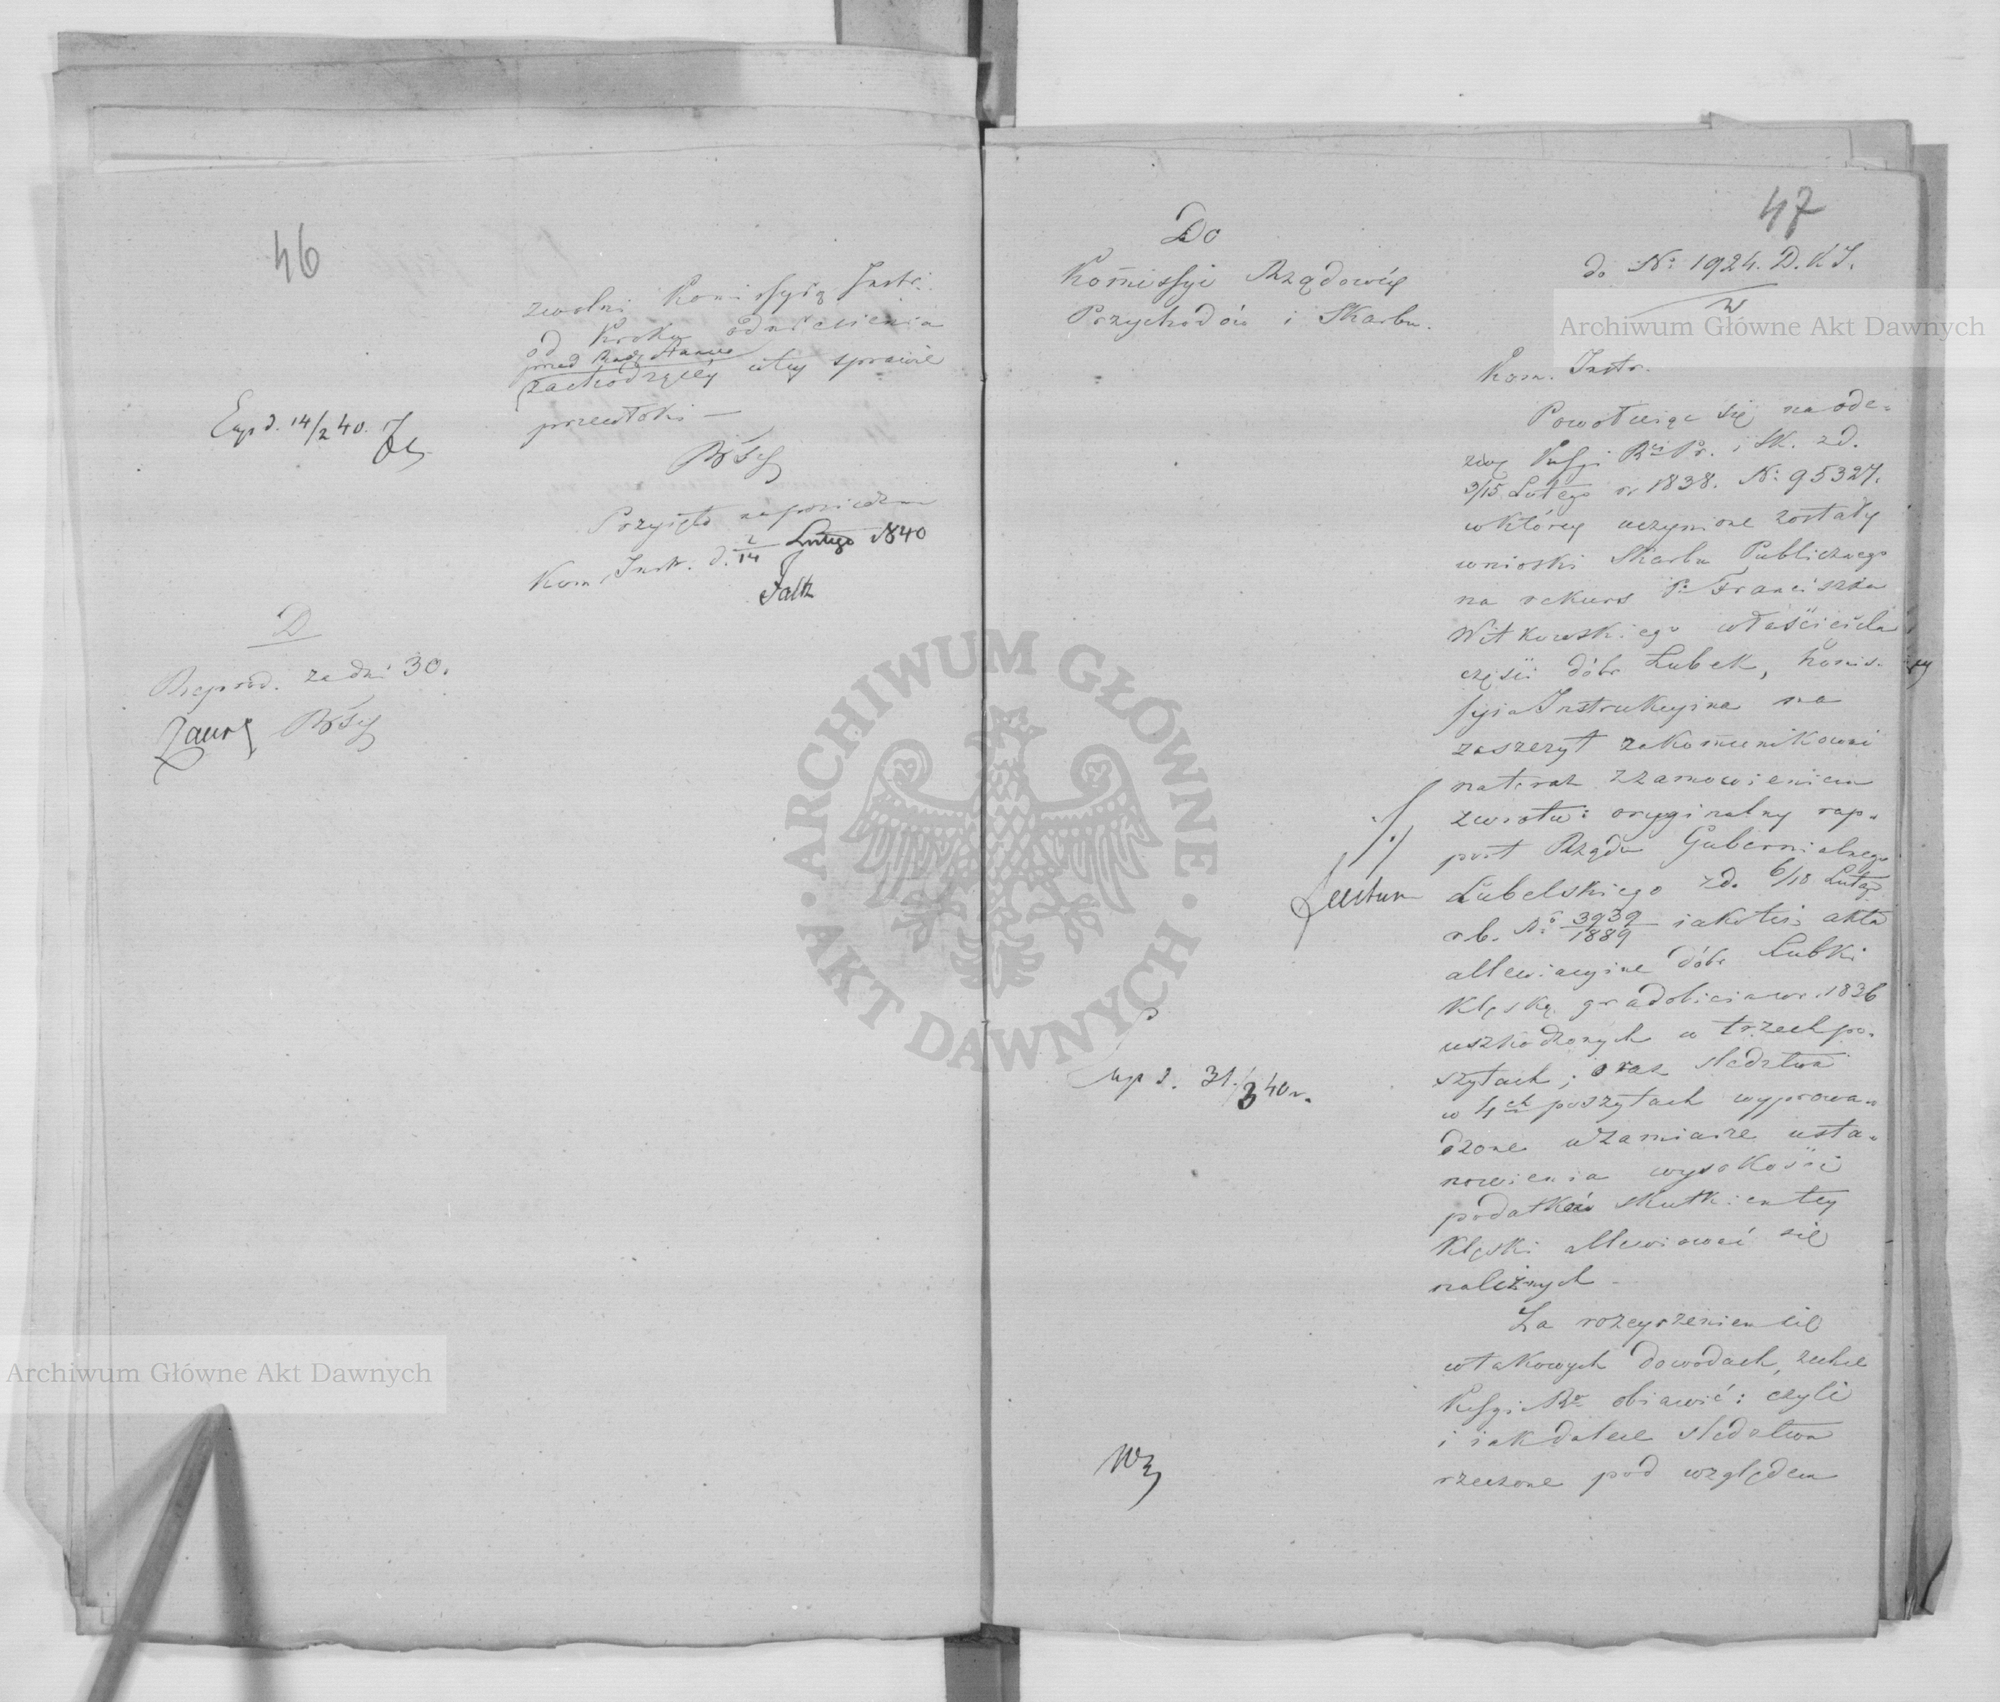 46
zwolni Komissyią Instr:
od kroku odniesienia
przed Radę Stanu
zachodzącéy w téy sprawie
przewłoki —
Exp d. 14/2 40.
Przyięto na posiedzeniu
Kom. Instr. d. 2/14 Lutego 1840
Falk
D
Reprod. za dni 30.
47
Do
Kom̃issyi Rządowéy
Przychodów i Skarbu.
do № 1924. D.K.I.
W
Kom. Instr.
Powołuiąc się na ode-
zwę Kssyi Rei Pr. i Sk. z d.
3/15 Lutego r. 1838. № 95327.
w któréy uczynione zostały
wnioski Skarbu Publicznego
na rekurs P. Franciszka
Witkowskiego właściciela
części dóbr Łubek, Kom̃is-
syia Instrukcyina ma
zaszczyt zakom̃unikować
nateraz z zamówieniem
zwrotu: oryginalny rap-
port Rządu Gubernialnego
Lubelskiego z d. 6/18 Lutego
r. b. № 3939/1889 iakoteż akta
allewiacyine dóbr Łubki
klęską gradobicia w r. 1836
uszkodzonych w trzech po-
szytach; oraz śledztwa
w 4ch poszytach wyprowa-
dzone w zamiarze usta-
nowienia wysokości
podatków skutkiem téy
klęski allewiować się
należnych —
Lectum
Exp d. 31/3 40 r.
Za rozeyrzeniem się
w takowych dowodach, zechce
Kssyi Ra obiawić: czyli
i iak dalece śledztwa
rzeczone pod względem